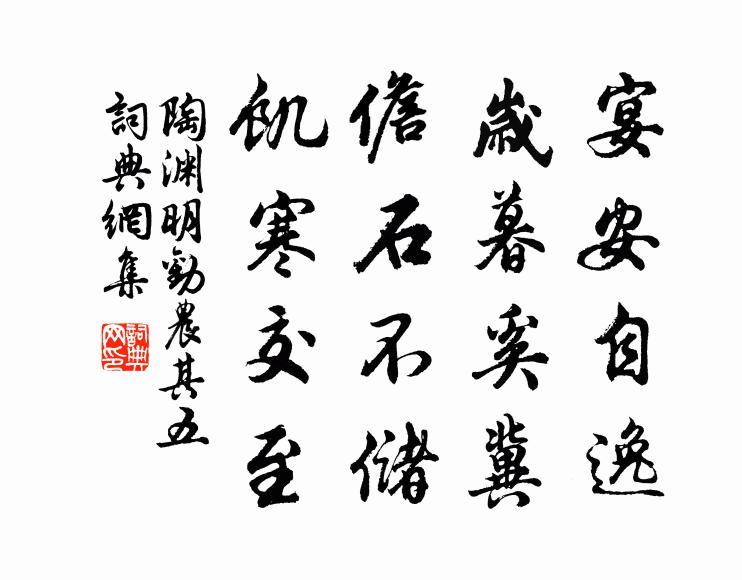 宴安自逸
歲暮奚冀
儋石不儲
飢寒交至
陶渊明勸農其五
詞典網集
詞典
网印